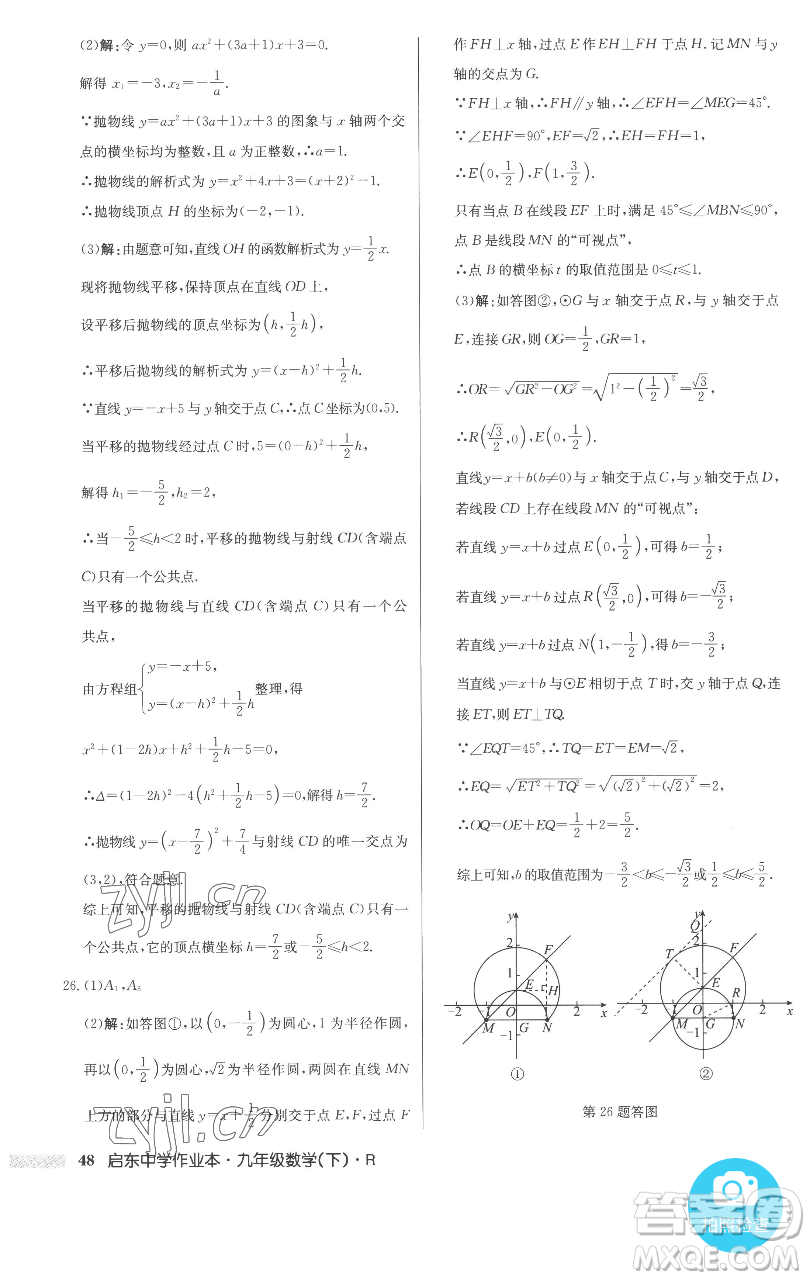 (2)解:令 y=0,则 ax²+(3a+1)x+3=0.
解得 x₁=-3,x₂=-1/a.
∵抛物线 y=ax²+(3a+1)x+3 的图象与 x 轴两个交
点的横坐标均为整数,且 a 为正整数,∴a=1.
∴抛物线的解析式为 y=x²+4x+3=(x+2)²-1.
∴抛物线顶点 H 的坐标为(-2,-1).
(3)解:由题意可知,直线 OH 的函数解析式为 y=1/2x.
现将抛物线平移,保持顶点在直线 OD 上,
设平移后抛物线的顶点坐标为(h,1/2h),
∴平移后抛物线的解析式为 y=(x-h)²+1/2h.
∵直线 y=-x+5 与 y 轴交于点 C,∴点 C 坐标为(0,5).
当平移的抛物线经过点 C 时,5=(0-h)²+1/2h,
解得 h₁=-5/2,h₂=2,
∴当-5/2≤h<2 时,平移的抛物线与射线 CD(含端点
C)只有一个公共点.
当平移的抛物线与直线 CD(含端点 C)只有一个公
共点,
由方程组{y=-x+5, y=(x-h)²+1/2h 整理,得
x²+(1-2h)x+h²+1/2h-5=0,
∴Δ=(1-2h)²-4(h²+1/2h-5)=0,解得 h=7/2.
∴抛物线 y=(x-7/2)²+7/4与射线 CD 的唯一交点为
(3,2),符合题意.
综上可知,平移的抛物线与射线 CD(含端点 C)只有一
个公共点,它的顶点横坐标 h=7/2或-5/2≤h<2.
26. (1)A₁,A₃
(2)解:如答图①,以(0,-1/2)为圆心,1 为半径作圆,
再以(0,1/2)为圆心,√2为半径作圆,两圆在直线 MN
上方的部分与直线 y=x+1/2分别交于点 E,F,过点 F
作 FH⊥x 轴,过点 E 作 EH⊥FH 于点 H. 记 MN 与 y
轴的交点为 G.
∵FH⊥x 轴,∴FH∥y 轴,∴∠EFH=∠MEG=45°.
∵∠EHF=90°,EF=√2,∴EH=FH=1,
∴E(0,1/2),F(1,3/2).
只有当点 B 在线段 EF 上时,满足 45°≤∠MBN≤90°,
点 B 是线段 MN 的“可视点”,
∴点 B 的横坐标 t 的取值范围是 0≤t≤1.
(3)解:如答图②,⊙G 与 x 轴交于点 R,与 y 轴交于点
E,连接 GR,则 OG=1/2,GR=1,
∴OR=√(GR²-OG²)=√(1²-(1/2)²)=√3/2,
∴R(√3/2,0),E(0,1/2).
直线 y=x+b(b≠0)与 x 轴交于点 C,与 y 轴交于点 D,
若线段 CD 上存在线段 MN 的“可视点”:
若直线 y=x+b 过点 E(0,1/2),可得 b=1/2;
若直线 y=x+b 过点R(√3/2,0),可得 b=-√3/2;
若直线 y=x+b 过点 N(1,-1/2),可得 b=-3/2;
当直线 y=x+b 与⊙E 相切于点 T 时,交 y 轴于点 Q,连
接 ET,则 ET⊥TQ.
∵∠EQT=45°,∴TQ=ET=EM=√2,
∴EQ=√(ET²+TQ²)=√((√2)²+(√2)²)=2,
∴OQ=OE+EQ=1/2+2=5/2.
综上可知,b 的取值范围为-3/2<b≤-√3/2或1/2≤b≤5/2.
y
2
F
1
E
H
-2 -1 O 1 2 x
M G N
-1
①
Q
y
2
T F
1
E
R
-2 -1 O 1 2 x
M G N
②
第 26 题答图
48 启东中学作业本·九年级数学(下)·R
拍照检查
zyjl.cn
zyjl.cn
答案圈
MXQE.COM